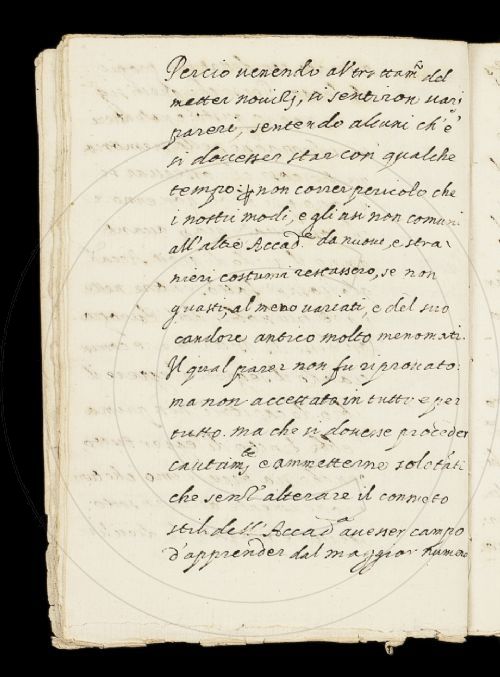 Perciò venendo al trattam.º del
metter novizj, si sentiron varj
pareri, sentendo alcuni ch'e
si dovesser star così qualche
tempo non correr pericolo che
i nostri modi, e gli usi non comuni
all'altre Accad.e da nuove, e stra-
nieri costumi restassero, se non
guasti, al meno variati, e del suo
candore antico molto menomati.
Il qual parer non fu riprovato:
ma non accettato in tutto e per
tutto. ma che si dovesse proceder
cautam.te e ammetterne solo tãti
che senz' alterare il
stil dell' Accad.a avesser campo
d'apprender dal maggior numero